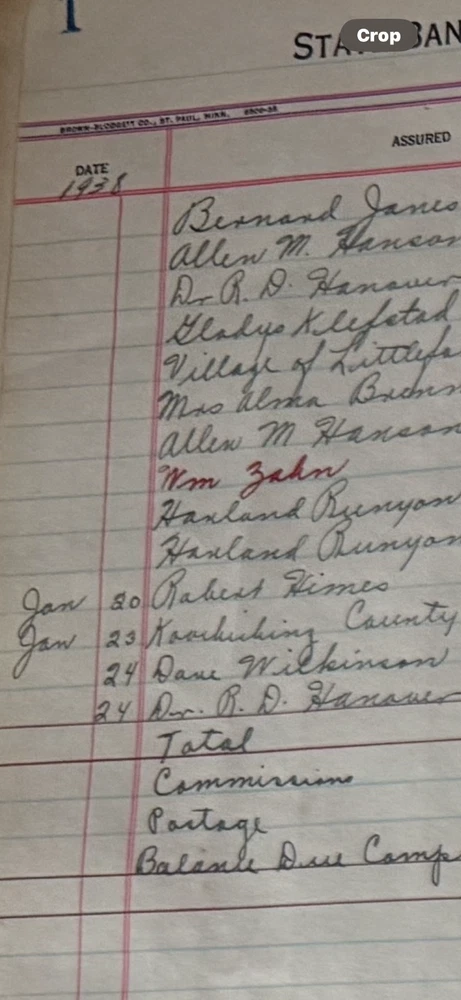 1
Crop
BROWN-BLODGETT CO., ST. PAUL, MINN.
ASSURED
DATE
1938
Bernard Janes
Allen M. Hanson
Dr R. D. Hanover
Gladys Klefstad
Village of Littlefo
Mrs Alma Brenn
Allen M Hanson
Wm Zahn
Harland Runyon
Harland Runyon
Jan 20 Robert Himes
Jan 23 Koochiching County
24 Dave Wilkinson
24 Dr. R. D. Hanover
Total
Commissions
Postage
Balance Due Comp